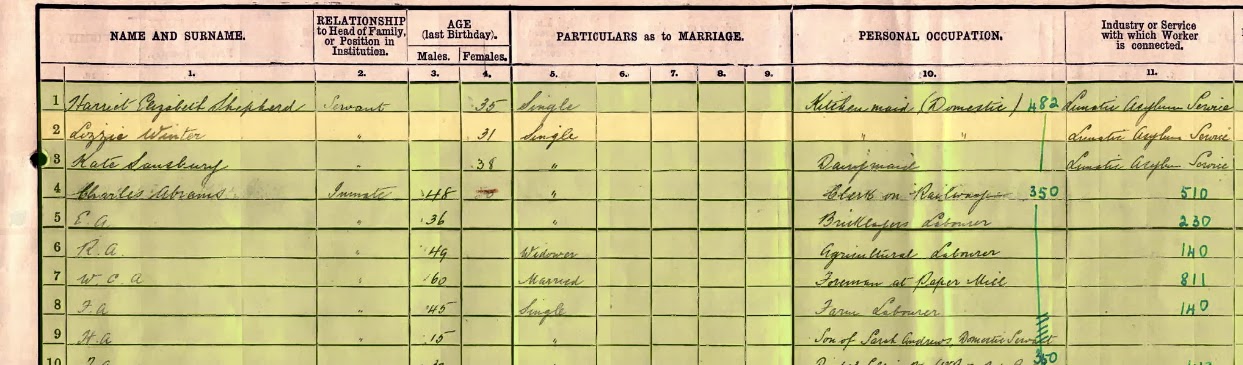 NAME AND SURNAME. RELATIONSHIP to Head of Family, or Position in Institution. AGE (last Birthday). Males. Females. PARTICULARS as to MARRIAGE. PERSONAL OCCUPATION. Industry or Service with which Worker is connected.
1. 2. 3. 4. 5. 6. 7. 8. 9. 10. 11.
1 Harriet Elizabeth Shepherd Servant 35 Single Kitchenmaid (Domestic) 482 Lunatic Asylum Service
2 Lizzie Winter " 31 Single " " Lunatic Asylum Service
3 Kate Sansbury " 38 " Dairymaid Lunatic Asylum Service
4 Charles Abrams Inmate 48 " Clerk on Railway 350 510
5 E. A " 36 " Bricklayers Labourer 230
6 R. A. " 49 Widower Agricultural Labourer 140
7 W. C. A " 60 Married Foreman at Paper Mill 811
8 F. A " 45 Single Farm Labourer 140
9 H. A " 15 " Son of Sarah Andrews, Domestic Servant
10 350